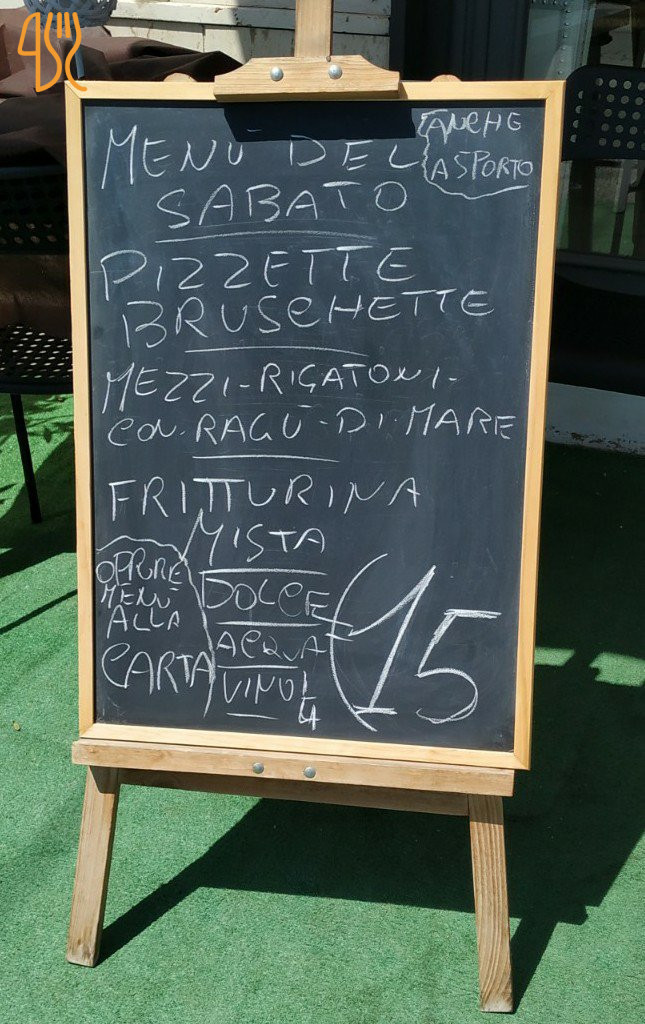 MENÙ DEL
SABATO
ANCHE
ASPORTO
PIZZETTE
BRUSCHETTE
MEZZI-RIGATONI-
CON-RAGÙ-DI-MARE
FRITTURINA
MISTA
DOLCE
ACQUA
VINO 1/4
€15
OPPURE
MENÙ
ALLA
CARTA